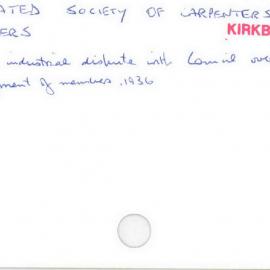 ATED SOCIETY OF CARPENTERS
ERS KIRKB
industrial dispute with Council over
ment of members, 1936